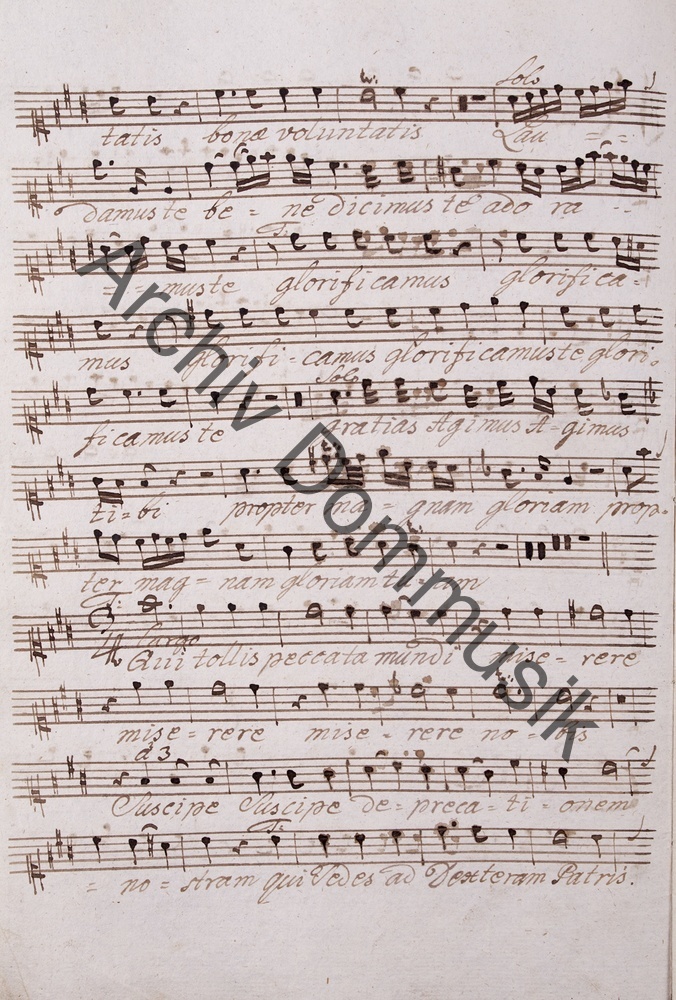 Solo
tatis bonæ voluntatis Lau = =
damus te be = ne dicimus te ado ra - -
T:
= - muste glorificamus glorifica =
mus glorifi - camus glorificamuste glori =
Solo
ficamus te gratias Agimus A = gimus
ti = bi propter ma = gnam gloriam prop =
ter mag = nam gloriam tu = am
T:
3
4 Largo
Qui tollis peccata mundi mise = rere
mise = rere mise = rere no = bis
a 3
Suscipe Suscipe de = preca = ti = onem
T:
= no = stram qui Sedes ad Dexteram Patris.
Archiv Dommusik